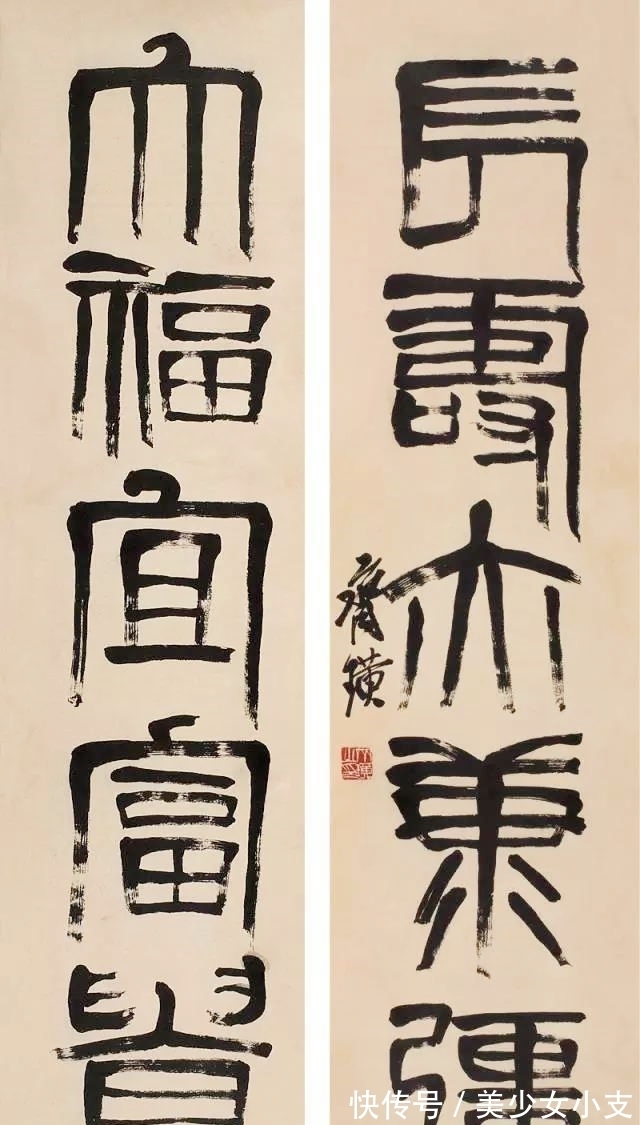 大福宜富貴
長壽亦康彊
齊璜
快传号/美少女小支